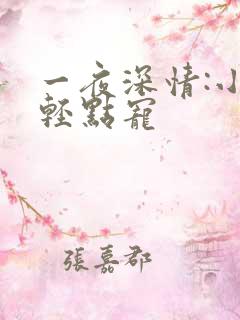 一夜深情:小
輕點寵
張嘉郡